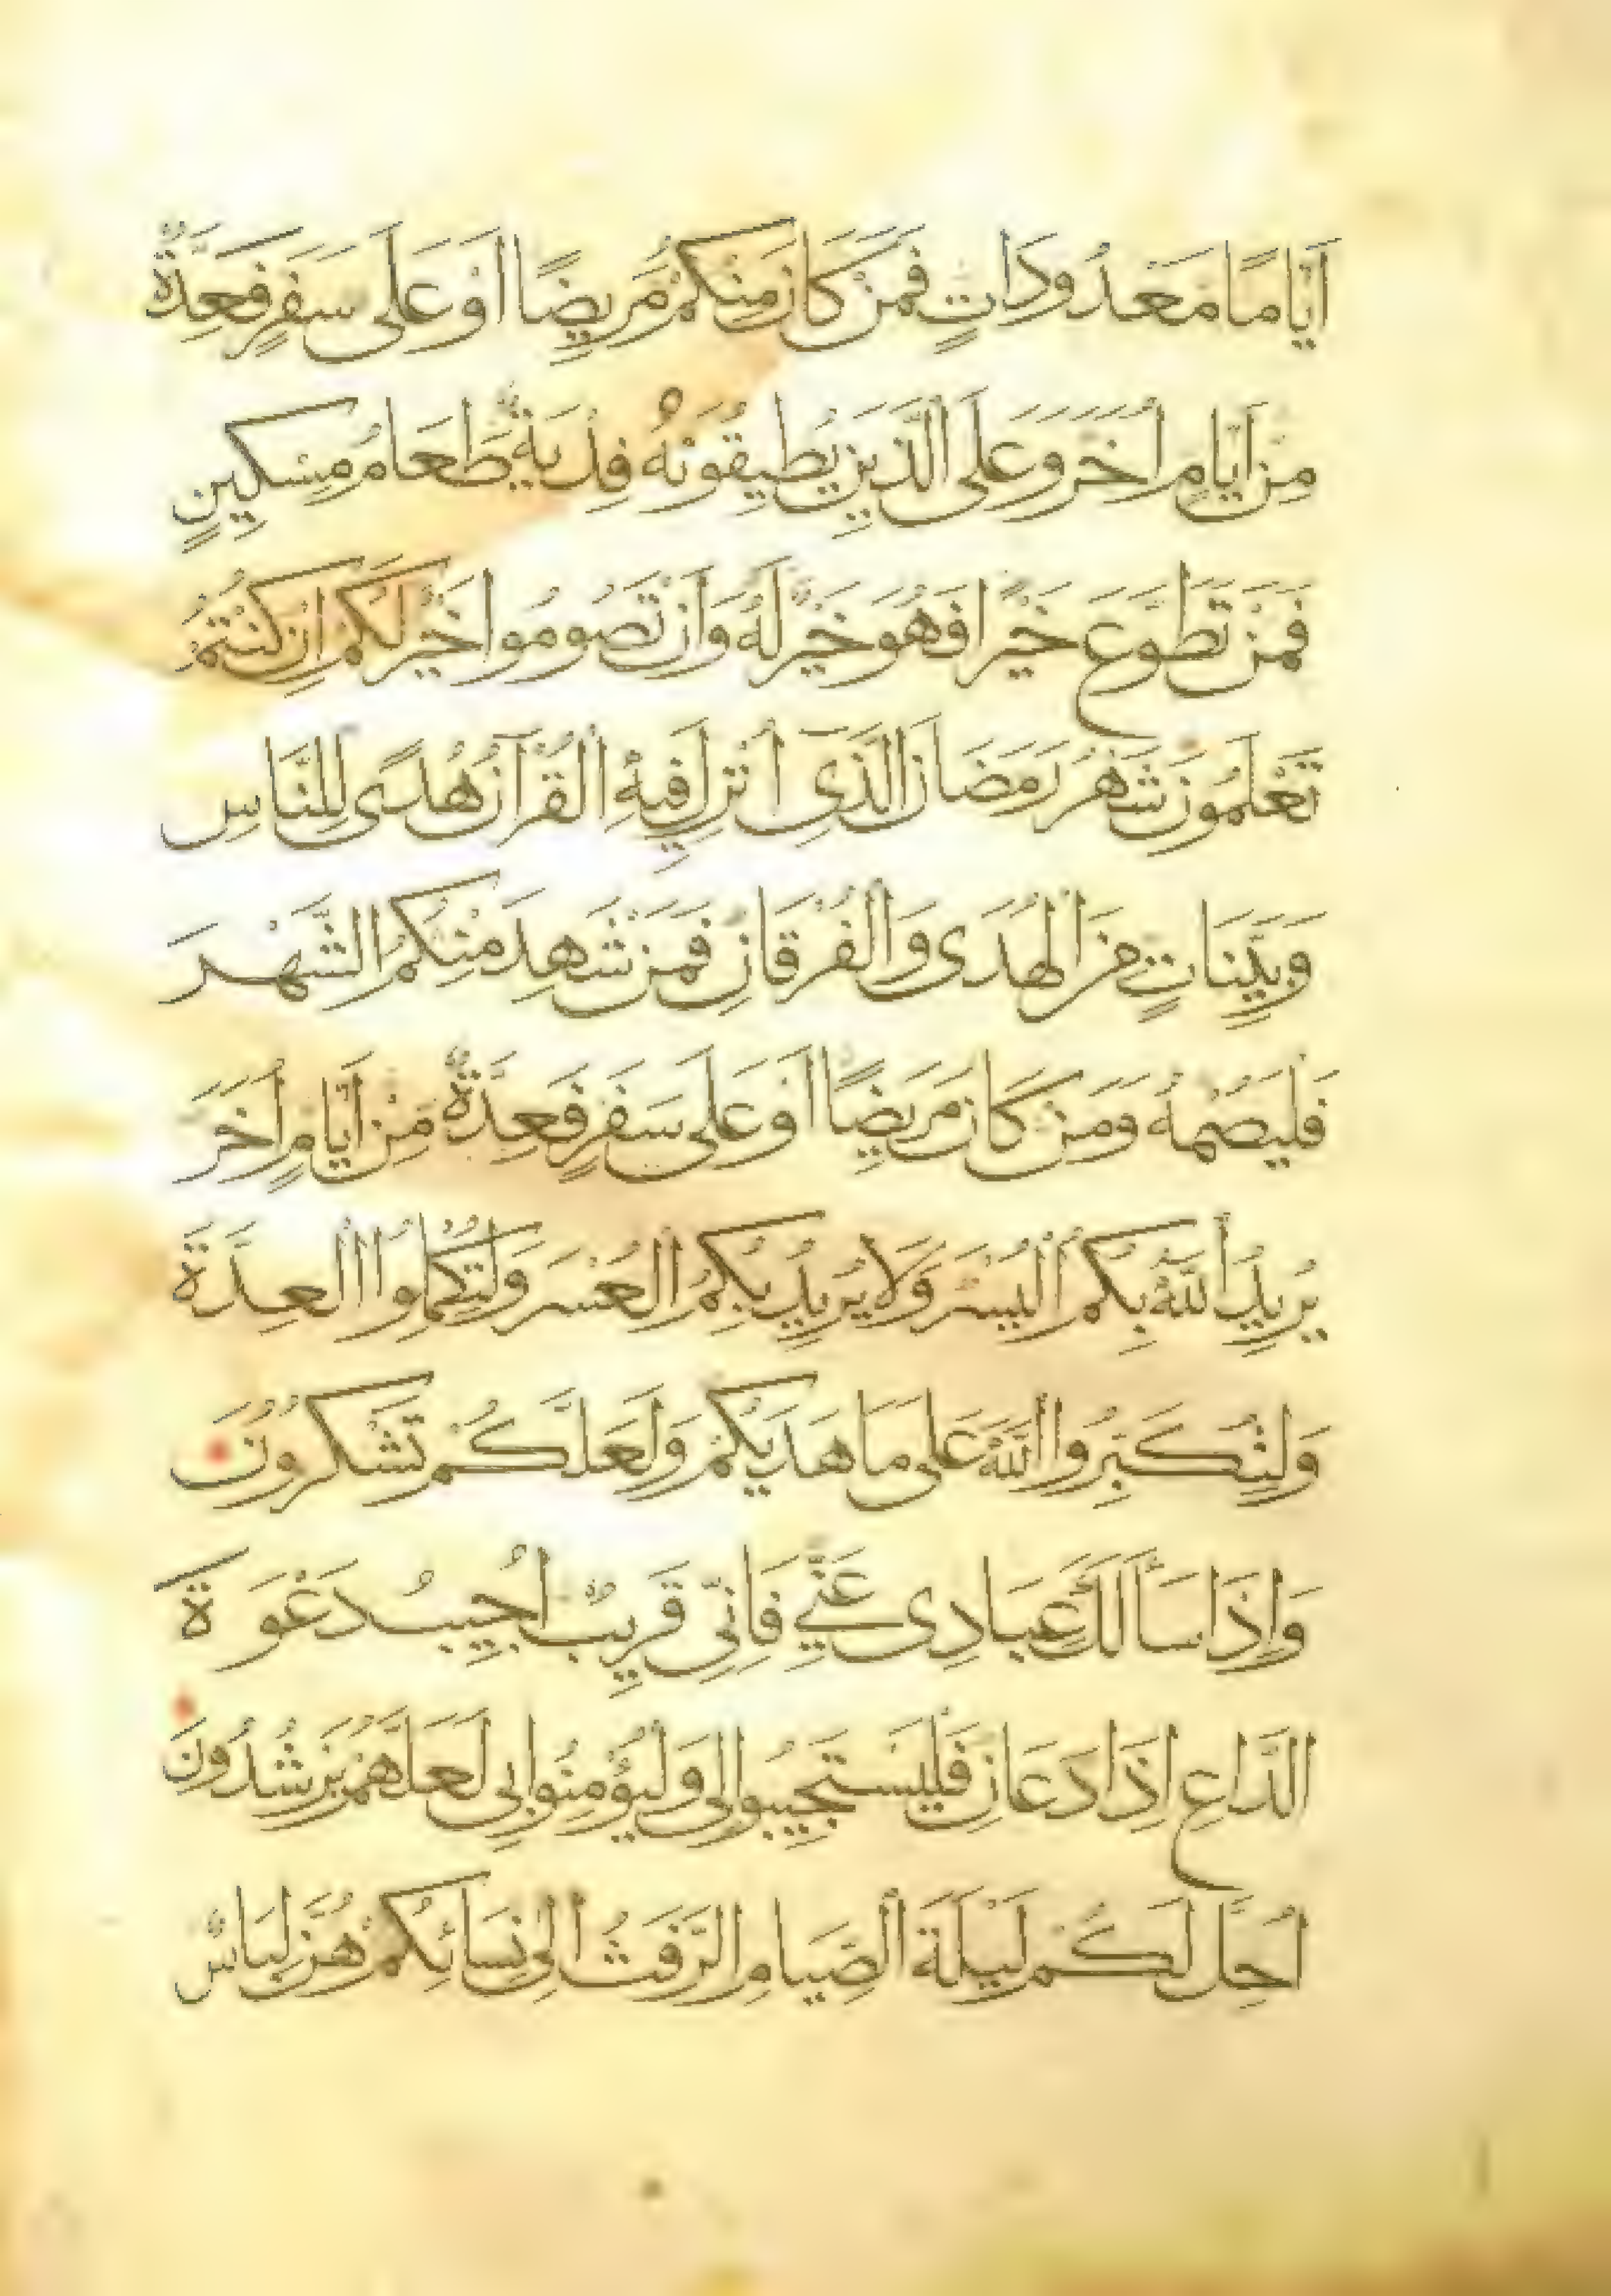 اَيَّامًا مَعْدُودَاتٍ فَمَنْ كَانَ مِنْكُمْ مَرِيضًا اَوْ عَلَى سَفَرٍ فَعِدَّةٌ
مِنْ اَيَّامٍ اُخَرَ وَعَلَى الَّذِينَ يُطِيقُونَهُ فِدْيَةٌ طَعَامُ مِسْكِينٍ
فَمَنْ تَطَوَّعَ خَيْرًا فَهُوَ خَيْرٌ لَهُ وَاَنْ تَصُومُوا خَيْرٌ لَكُمْ اِنْ كُنْتُمْ
تَعْلَمُونَ شَهْرُ رَمَضَانَ الَّذِى اُنْزِلَ فِيهِ الْقُرْآنُ هُدًى لِلنَّاسِ
وَبَيِّنَاتٍ مِنَ الْهُدَى وَالْفُرْقَانِ فَمَنْ شَهِدَ مِنْكُمُ الشَّهْرَ
فَلْيَصُمْهُ وَمَنْ كَانَ مَرِيضًا اَوْ عَلَى سَفَرٍ فَعِدَّةٌ مِنْ اَيَّامٍ اُخَرَ
يُرِيدُ اللّٰهُ بِكُمُ الْيُسْرَ وَلَا يُرِيدُ بِكُمُ الْعُسْرَ وَلِتُكْمِلُوا الْعِدَّةَ
وَلِتُكَبِّرُوا اللّٰهَ عَلَى مَا هَدَيكُمْ وَلَعَلَّكُمْ تَشْكُرُونَ
وَاِذَا سَاَلَكَ عِبَادِى عَنِّي فَاِنِّى قَرِيبٌ اُجِيبُ دَعْوَةَ
الدَّاعِ اِذَا دَعَانِ فَلْيَسْتَجِيبُوا لِى وَلْيُؤْمِنُوا بِى لَعَلَّهُمْ يَرْشُدُونَ
اُحِلَّ لَكُمْ لَيْلَةَ الصِّيَامِ الرَّفَثُ اِلَى نِسَائِكُمْ هُنَّ لِبَاسٌ